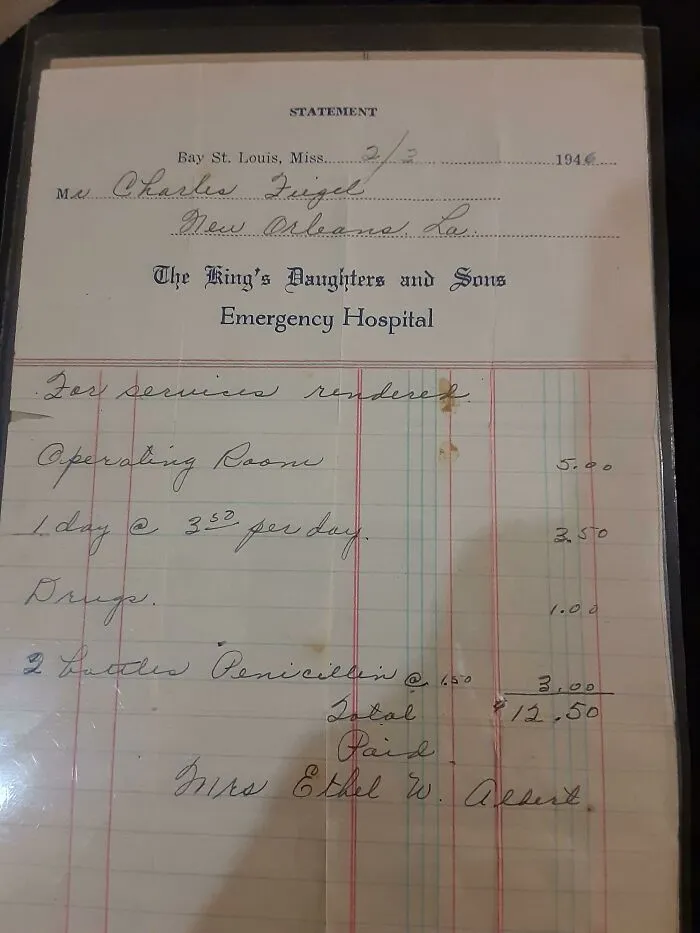 STATEMENT
Bay St. Louis, Miss. 2/3 1946
Mr Charles Fiegel
New Orleans. La.
The King's Daughters and Sons
Emergency Hospital
For services rendered.
Operating Room 5.00
1 day @ 3 50 per day. 3.50
Drugs. 1.00
2 bottles Penicillin @ 1.50 3.00
Total $12.50
Paid
Mrs Ethel W. Albert.